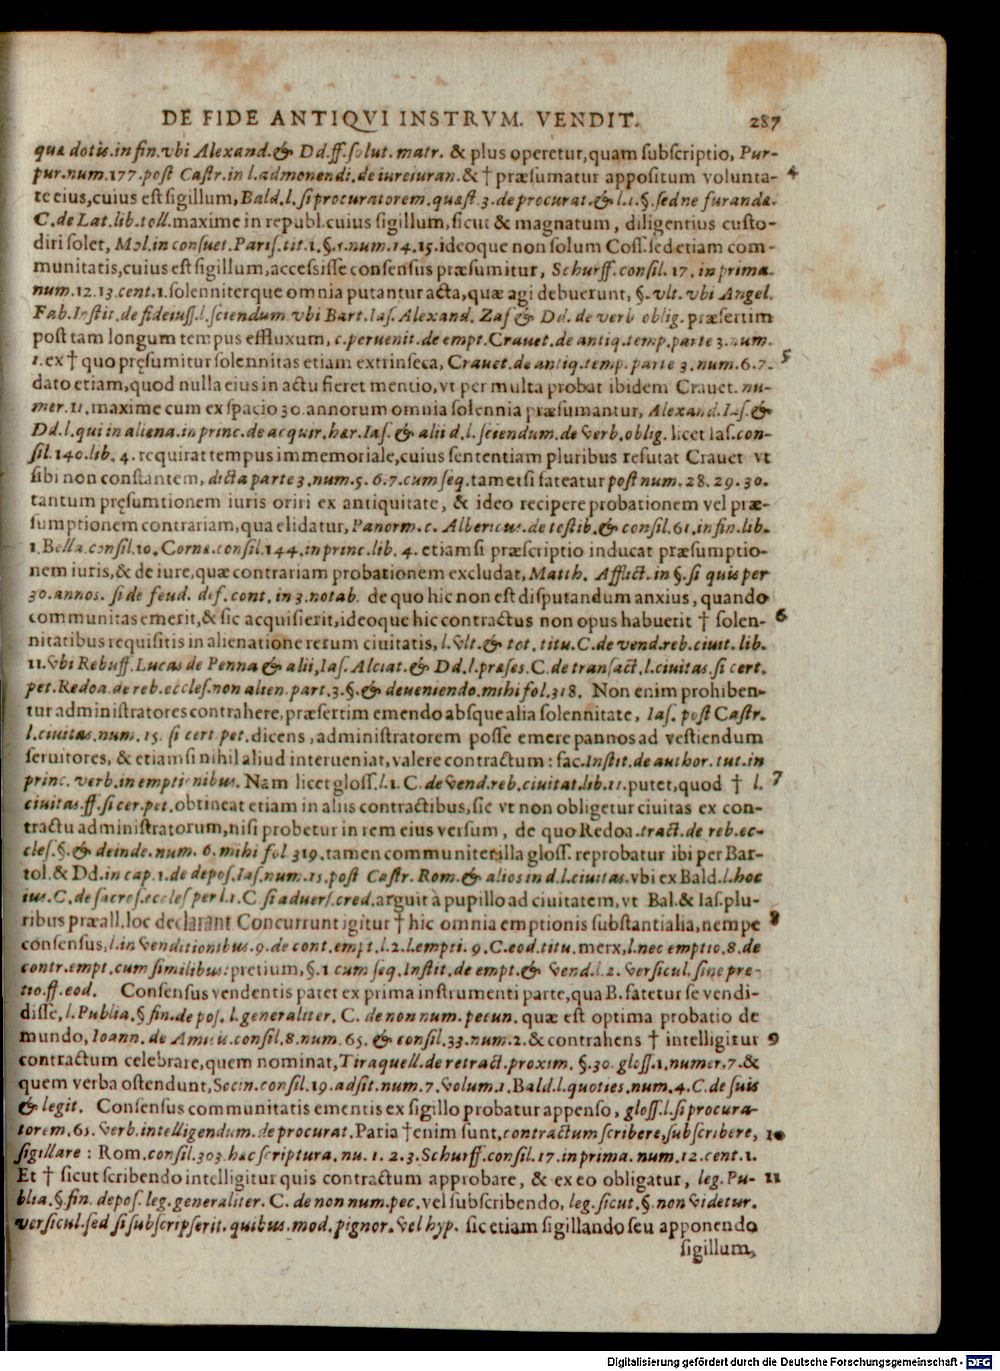 DE FIDE ANTIQVI INSTRVM. VENDIT. 287
quæ dotis. in fin. vbi Alexand. & Dd. ff. solut. matr. & plus operetur, quam subscriptio, Pur-
pur. num. 177. post Castr. in l. admonendi. de iureiuran. & † præsumatur appositum volunta- 4
te eius, cuius est sigillum, Bald. l. si procuratorem. quæst. 3. de procurat. & l. 1. §. sed ne furandæ.
C. de Lat. lib. toll. maxime in republ. cuius sigillum, sicut & magnatum, diligentius custo-
diri solet, Mol. in consuet. Paris. tit. 1. §. 1. num. 14. 15. ideoque non solum Coss. sed etiam com-
munitatis, cuius est sigillum, accessisse consensus præsumitur, Schurff. consil. 17. in prima.
num. 12. 13. cent. 1. solenniterque omnia putantur acta, quæ agi debuerunt, §. vlt. vbi Angel.
Fab. Instit. de fideiuss. l. sciendum. vbi Bart. Ias. Alexand. Zas. & Dd. de verb. oblig. præsertim
post tam longum tempus effluxum, c. peruenit. de empt. Crauet. de antiq. temp. parte 3. num.
1. ex † quo pręsumitur solennitas etiam extrinseca, Crauet. de antiq. temp. parte 3. num. 6. 7. 5
dato etiam, quod nulla eius in actu fieret mentio, vt per multa probat ibidem Crauet. nu-
mer. 11. maxime cum ex spacio 30. annorum omnia solennia præsumantur, Alexand. Ias. &
Dd. l. qui in aliena. in princ. de acquir. hær. Ias. & alii d. l. sciendum. de verb. oblig. licet Ias. con-
sil. 140. lib. 4. requirat tempus immemoriale, cuius sententiam pluribus refutat Crauet vt
sibi non constantem, dicta parte 3. num. 5. 6. 7. cum seq. tametsi fateatur post num. 28. 29. 30.
tantum pręsumtionem iuris oriri ex antiquitate, & ideo recipere probationem vel præ-
sumptionem contrariam, qua elidatur, Panorm. c. Albericus. de testib. & consil. 61. in fin. lib.
1. Bella. consil. 10. Corne. consil. 144. in princ. lib. 4. etiamsi præscriptio inducat præsumptio-
nem iuris, & de iure, quæ contrariam probationem excludat, Matth. Afflict. in §. si quis per
30. annos. si de feud. def. cont. in 3. notab. de quo hic non est disputandum anxius, quando
communitas emerit, & sic acquisierit, ideoque hic contractus non opus habuerit † solen- 6
nitatibus requisitis in alienatione rerum ciuitatis, l. vlt. & tot. titu. C. de vend. reb. ciuit. lib.
11. vbi Rebuff. Lucas de Penna & alii, Ias. Alciat. & Dd. l. præses. C. de transact. l. ciuitas. si cert.
pet. Redoa. de reb. eccles. non alien. part. 3. §. & deueniendo. mihi fol. 318. Non enim prohiben-
tur administratores contrahere, præsertim emendo absque alia solennitate, Ias. post Castr.
l. ciuitas. num. 15. si cert. pet. dicens, administratorem posse emere pannos ad vestiendum
seruitores, & etiamsi nihil aliud interueniat, valere contractum: fac. Instit. de author. tut. in
princ. verb. in emptionibus. Nam licet gloss. l. 1. C. de vend. reb. ciuitat. lib. 11. putet, quod † l. 7
ciuitas. ff. si cer. pet. obtineat etiam in aliis contractibus, sic vt non obligetur ciuitas ex con-
tractu administratorum, nisi probetur in rem eius versum, de quo Redoa. tract. de reb. ec-
cles. §. & deinde. num. 6. mihi fol 319. tamen communiter illa gloss. reprobatur ibi per Bar-
tol. & Dd. in cap. 1. de depos. Ias. num. 15. post Castr. Rom. & alios in d. l. ciuitas. vbi ex Bald. l. hoc
ius. C. de sacros. eccles per l. 1. C. si aduers. cred. arguit à pupillo ad ciuitatem, vt Bal. & Ias. plu-
ribus præall. loc declarant Concurrunt igitur † hic omnia emptionis substantialia, nempe 8
consensus, l. in venditionibus. 9. de cont. empt. l. 2. l. empti. 9. C. eod. titu. merx, l. nec emptio. 8. de
contr. empt. cum similibus: pretium, §. 1 cum seq. Instit. de empt. & vend. l. 2. versicul. sine pre-
tio. ff. eod. Consensus vendentis patet ex prima instrumenti parte, qua B. fatetur se vendi-
disse, l. Publia. § fin. depos. l. generaliter. C. de non num. pecun. quæ est optima probatio de
mundo, Ioann. de Amicis. consil. 8. num. 65. & consil. 33. num. 2. & contrahens † intelligitur 9
contractum celebrare, quem nominat, Tiraquell. de retract. proxim. §. 30. gloss. 1. numer. 7. &
quem verba ostendunt, Socin. consil. 19. ad sit. num. 7. volum. 1. Bald. l. quoties. num. 4. C. de suis
& legit. Consensus communitatis ementis ex sigillo probatur appenso, gloss. l. si procura-
torem. 65. verb. intelligendum. de procurat. Paria † enim sunt, contractum scribere, subscribere, 10
sigillare: Rom. consil. 303. hac scriptura. nu. 1. 2. 3. Schurff. consil. 17. in prima. num. 12. cent. 1.
Et † sicut scribendo intelligitur quis contractum approbare, & ex eo obligatur, leg. Pu- 11
blia. §. fin. depos. leg. generaliter. C. de non num. pec. vel subscribendo, leg. sicut. §. non videtur.
versicul. sed si subscripserit. quibus. mod. pignor. vel hyp. sic etiam sigillando seu apponendo
sigillum,
Digitalisierung gefördert durch die Deutsche Forschungsgemeinschaft - DFG